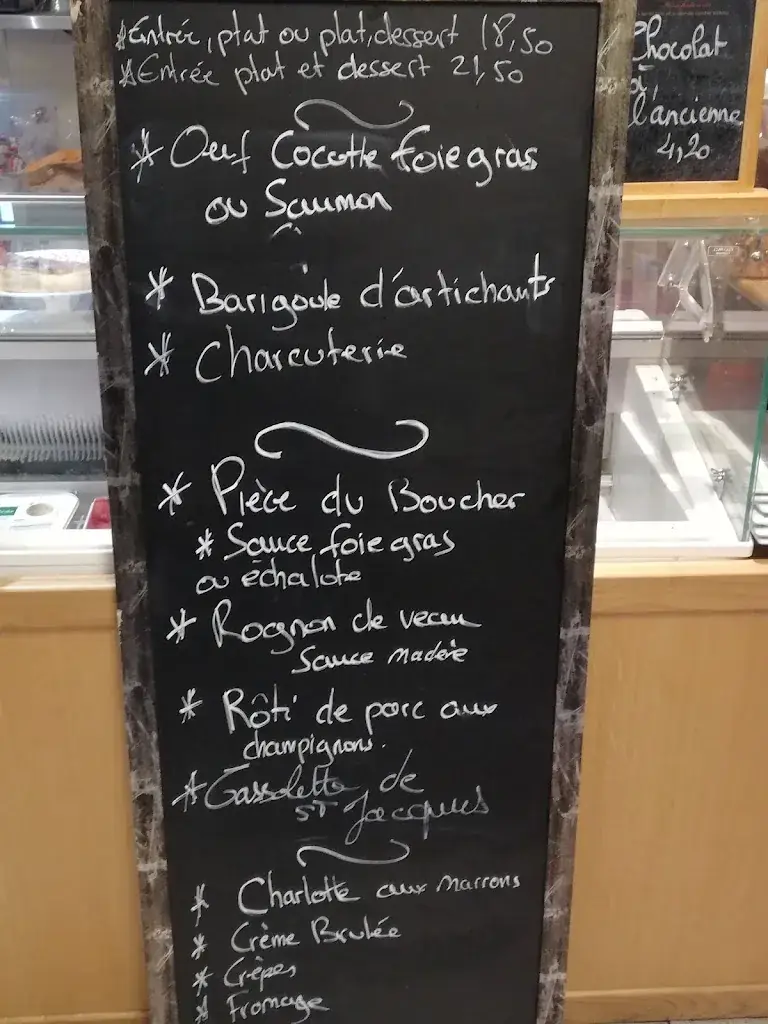 *Entrée, plat ou plat, dessert 18,50
*Entrée plat et dessert 21,50
* Oeuf Cocotte foie gras
ou Saumon
* Barigoule d'artichauts
* Charcuterie
* Pièce du Boucher
* Sauce foie gras
ou échalote
* Rognon de veau
Sauce madère
* Rôti de porc aux
champignons.
* Cassolette de
ST Jacques
* Charlotte aux marrons
* Crème Brulée
* Crêpes
* Fromage
Chocolat
à
l'ancienne
4,20